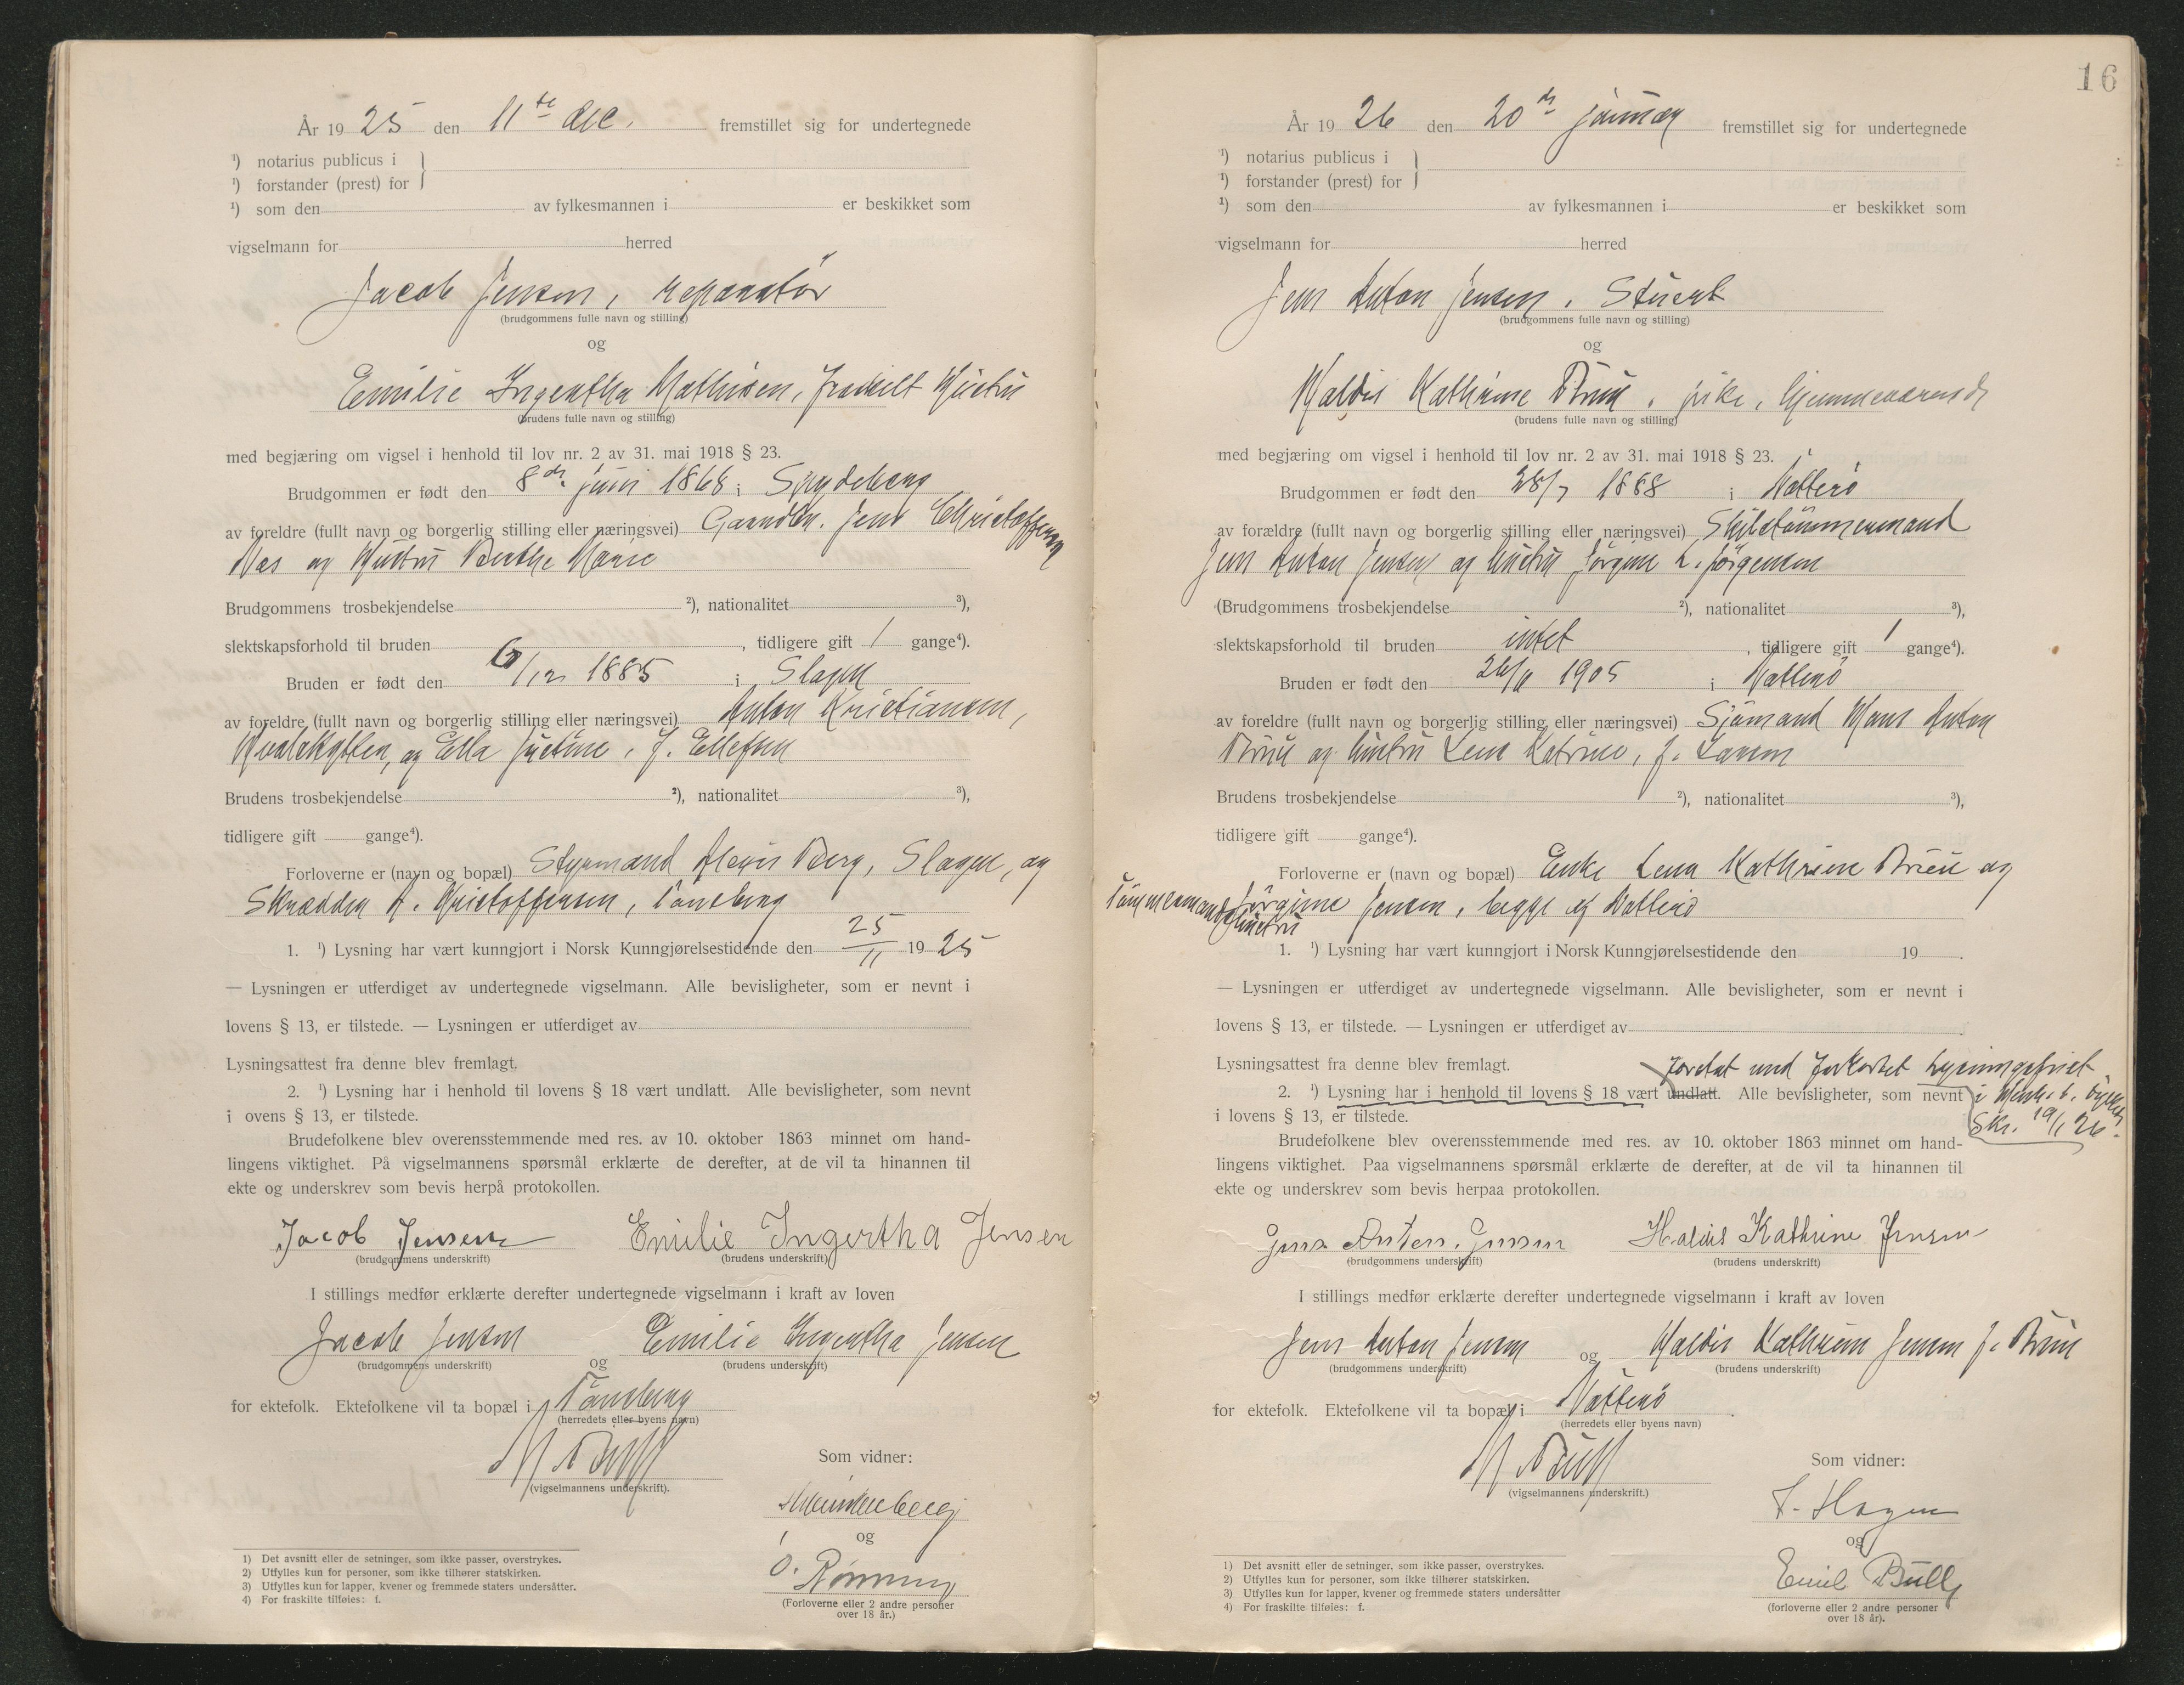 År 1925 den 11te dec. fremstillet sig for undertegnede
¹) notarius publicus i
¹) forstander (prest) for
¹) som den av fylkesmannen i er beskikket som
vigselmann for herred
Jacob Jensen, reparatør
(brudgommens fulle navn og stilling)
og
Emilie Ingertha Mathisen, fraskilt Hustru
(brudens fulle navn og stilling)
med begjæring om vigsel i henhold til lov nr. 2 av 31. mai 1918 § 23.
Brudgommen er født den 8de juni 1868 i Spydeberg
av foreldre (fullt navn og borgerlig stilling eller næringsvei) Gaardbr. Jens Christoffersen
Næs og Hustru Berthe Marie
Brudgommens trosbekjendelse ²), nationalitet ³),
slektskapsforhold til bruden , tidligere gift 1 gange⁴).
Bruden er født den 6/12 1885 i Slagen
av foreldre (fullt navn og borgerlig stilling eller næringsvei) Anton Kristiansen,
Hvalskytter, og Ella Justine, f. Ellefsen
Brudens trosbekjendelse ²), nationalitet ³),
tidligere gift gange⁴).
Forloverne er (navn og bopæl) Styrmand Berg, Slagen, og
Skrædder A. Kristoffersen, Tønsberg
1. ¹) Lysning har vært kunngjort i Norsk Kunngjørelsestidende den 25/11 1925
— Lysningen er utferdiget av undertegnede vigselmann. Alle bevisligheter, som er nevnt i
lovens § 13, er tilstede. — Lysningen er utferdiget av
Lysningsattest fra denne blev fremlagt.
2. ¹) Lysning har i henhold til lovens § 18 vært undlatt. Alle bevisligheter, som nevnt
i ovens § 13, er tilstede.
Brudefolkene blev overensstemmende med res. av 10. oktober 1863 minnet om hand-
lingens viktighet. På vigselmannens spørsmål erklærte de derefter, at de vil ta hinannen til
ekte og underskrev som bevis herpå protokollen.
Jacob Jensen Emilie Ingertha Jensen
(brudgommens underskrift) (brudens underskrift)
I stillings medfør erklærte derefter undertegnede vigselmann i kraft av loven
Jacob Jensen og Emilie Ingertha Jensen
(brudgommens underskrift) (brudens underskrift)
for ektefolk. Ektefolkene vil ta bopæl i Tønsberg
(herredets eller byens navn)
Bull
(vigselmannens underskrift).
Som vidner:
og
O. Rønning
(Forloverne eller 2 andre personer
over 18 år.)
1) Det avsnitt eller de setninger, som ikke passer, overstrykes.
2) Utfylles kun for personer, som ikke tilhører statskirken.
3) Utfylles kun for lapper, kvener og fremmede staters undersåtter.
4) For fraskilte tilføies: f.
16
År 1926 den 20de januar fremstillet sig for undertegnede
¹) notarius publicus i
¹) forstander (prest) for
¹) som den av fylkesmannen i er beskikket som
vigselmann for herred
Jens Anton Jensen, Stuert
(brudgommens fulle navn og stilling)
og
Haldis Kathrine Bruu, pike, hjemmeværende
(brudens fulle navn og stilling)
med begjæring om vigsel i henhold til lov nr. 2 av 31. mai 1918 § 23.
Brudgommen er født den 28/7 1888 i Nøtterø
av forældre (fullt navn og borgerlig stilling eller næringsvei) Skibstømmermand
Jens Anton Jensen og hustru Jørgine L. Jørgensen
(Brudgommens trosbekjendelse ²), nationalitet ³),
slektskapsforhold til bruden intet , tidligere gift 1 gange⁴).
Bruden er født den 26/11 1905 i Nøtterø
av foreldre (fullt navn og borgerlig stilling, eller næringsvei) Sjømand Hans Anton
Bruu og hustru Lena Katrine, f. Larsen
Brudens trosbekjendelse ²), nationalitet ³),
tidligere gift gange⁴).
Forloverne er (navn og bopæl) Enke Lena Kathrine Bruu og
Tømmermandshustru Jørgine Jensen, begge af Nøtterø
1. ¹) Lysning har vært kunngjort i Norsk Kunngjørelsestidende den 19 .
— Lysningen er utferdiget av undertegnede vigselmann. Alle bevisligheter, som er nevnt i
lovens § 13, er tilstede. — Lysningen er utferdiget av
Lysningsattest fra denne blev fremlagt.
foretat med forkortet Lysningsfrist
2. ¹) Lysning har i henhold til lovens § 18 vært undlatt. Alle bevisligheter, som nevnt i
i lovens § 13, er tilstede. Skr. 19/1 26.
Brudefolkene blev overensstemmende med res. av 10. oktober 1863 minnet om hand-
lingens viktighet. Paa vigselmannens spørsmål erklærte de derefter, at de vil ta hinannen til
ekte og underskrev som bevis herpaa protokollen.
Jens Anton Jensen Haldis Kathrine Jensen
(brudgommens underskrift) (brudens underskrift)
I stillings medfør erklærte derefter undertegnede vigselmann i kraft av loven
Jens Anton Jensen og Haldis Kathrine Jensen f. Bruu
(brudgommens underskrift) (brudens underskrift)
for ektefolk. Ektefolkene vil ta bopæl i Nøtterø
(herredets eller byens navn)
Bull
(vigselmannens underskrift.)
Som vidner:
Hagen
og
Emil Bull
(forloverne eller 2 andre personer
over 18 år).
1) Det avsnitt eller de setninger, som ikke passer, overstrykes.
2) Utfylles kun for personer, som ikke tilhører statskirken.
3) Utfylles kun for lapper, kvener og fremmede staters undersåtter
4) For fraskilte tilføies: f.